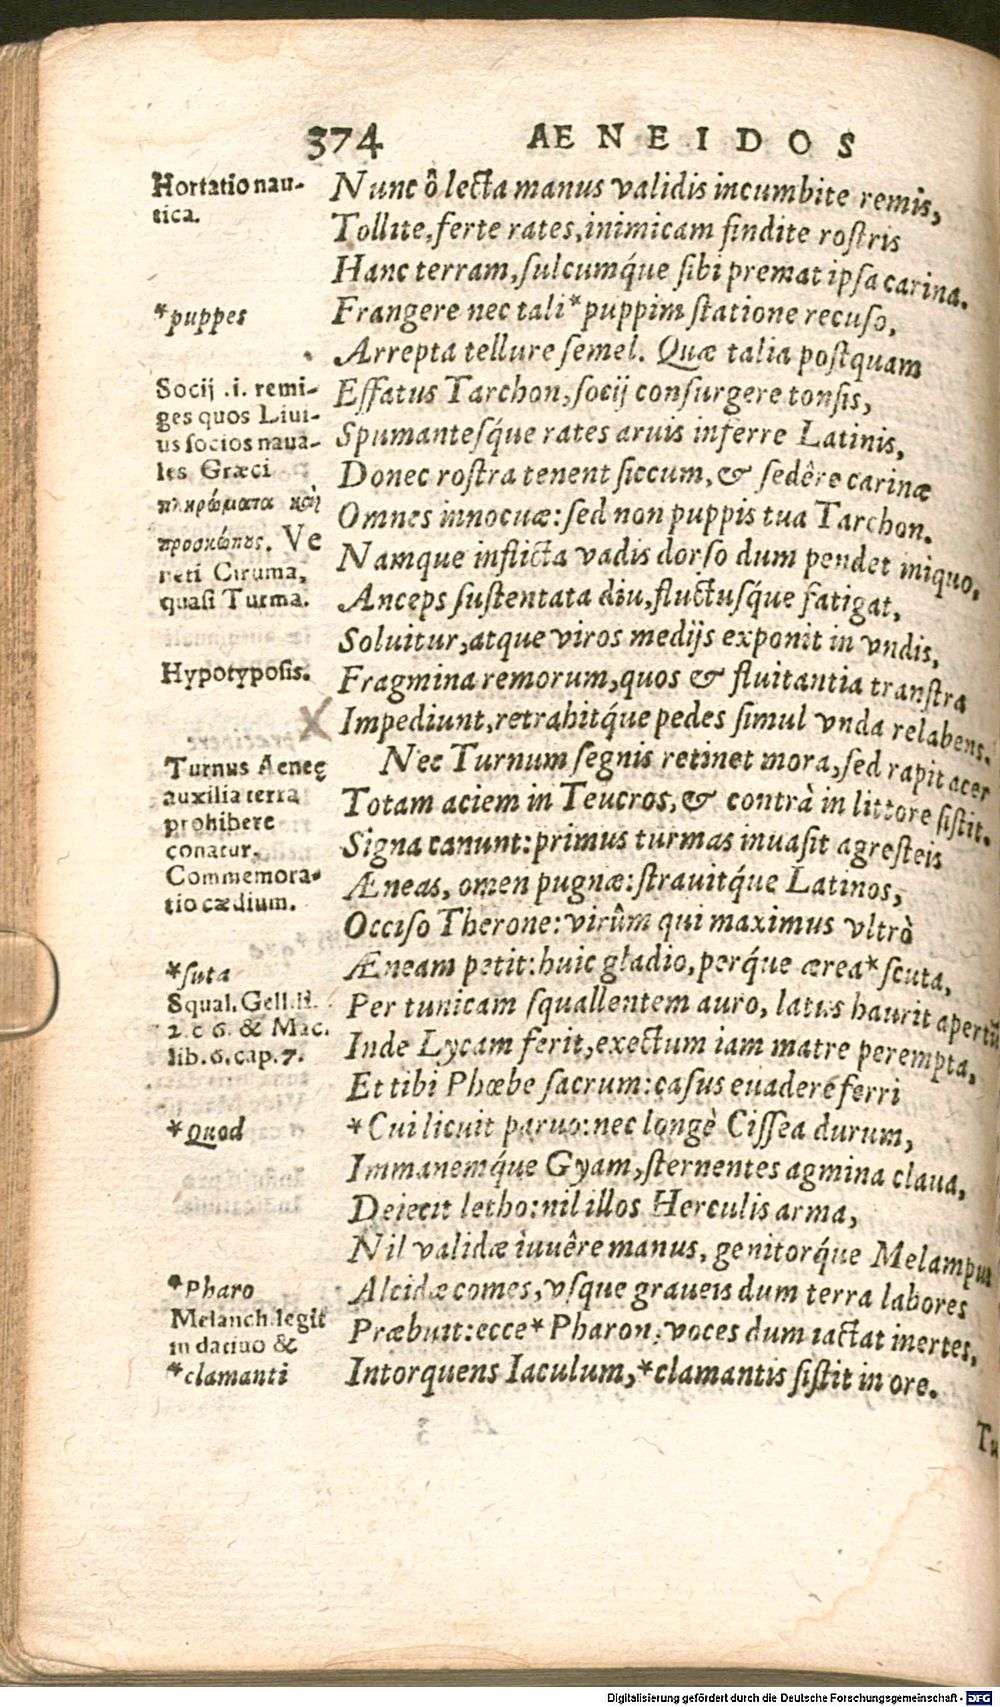 374 AENEIDOS
Hortatio nau-
tica.
*puppes
Socij .i. remi-
ges quos Liui-
us socios naua-
les Græci
πληρώματα καὶ
προσκώπους. Ve
neti Ciruma,
quasi Turma.
Hypotyposis.
Turnus Aeneę
auxilia terra
prohibere
conatur.
Commemora-
tio cædium.
*suta
Squal. Gell. li.
2. c 6. & Mac.
lib. 6. cap. 7.
*Quod
*Pharo
Melanch. legit
in datiuo &
*clamanti
Nunc ô lecta manus validis incumbite remis,
Tollite, ferte rates, inimicam findite rostris
Hanc terram, sulcumq́ue sibi premat ipsa carina.
Frangere nec tali *puppim statione recuso,
Arrepta tellure semel. Quæ talia postquam
Effatus Tarchon, socij consurgere tonsis,
Spumantesq́ue rates aruis inferre Latinis,
Donec rostra tenent siccum, & sedêre carinæ
Omnes innocuæ: sed non puppis tua Tarchon.
Namque inflicta vadis dorso dum pendet iniquo,
Anceps sustentata diu, fluctusq́ue fatigat,
Soluitur, atque viros medijs exponit in vndis,
Fragmina remorum, quos & fluitantia transtra
Impediunt, retrahitq́ue pedes simul vnda relabens.
Nec Turnum segnis retinet mora, sed rapit acer
Totam aciem in Teucros, & contrà in littore sistit.
Signa canunt: primus turmas inuasit agresteis
Æneas, omen pugnæ: strauitq́ue Latinos,
Occiso Therone: virûm qui maximus vltrò
Æneam petit: huic gladio, perq́ue ærea *scuta,
Per tunicam squallentem auro, latus haurit apertū
Inde Lycam ferit, exectum iam matre perempta,
Et tibi Phœbe sacrum: casus euadere ferri
*Cui licuit paruo: nec longè Cissea durum,
Immanemq́ue Gyam, sternentes agmina claua,
Deiecit letho: nil illos Herculis arma,
Nil validæ iuuêre manus, genitorq́ue Melampus
Alcidæ comes, vsque graueis dum terra labores
Præbuit: ecce *Pharon, voces dum iactat inertes,
Intorquens Iaculum, *clamantis sistit in ore.
Tu
Digitalisierung gefördert durch die Deutsche Forschungsgemeinschaft - DFG